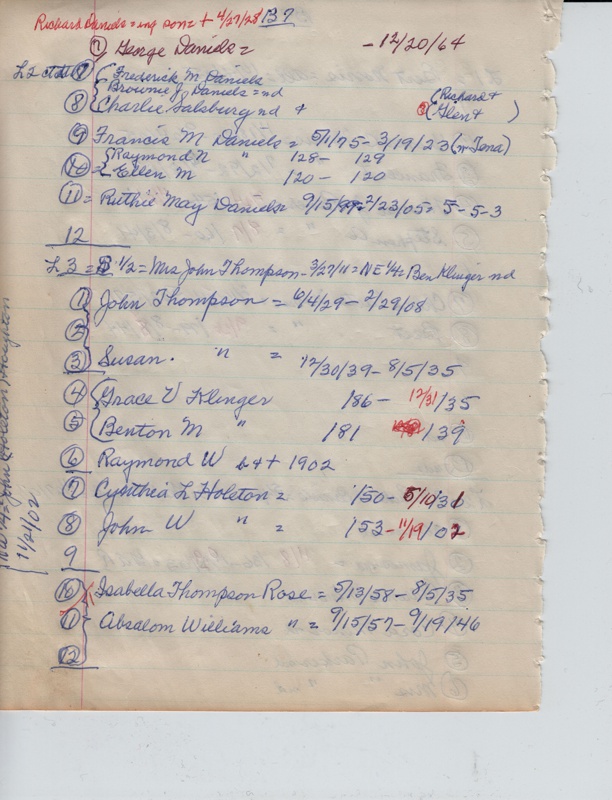 Richard Daniels = ing son = + 4/27/28 B7
⑦ George Daniels = - 12/20/64
L2 ctd ⑧ Frederick M. Daniels
Brownie J. Daniels = nd
⑧ Charlie Salsburg nd + (Richard + Glen + )
⑨ Francis M Daniels = 5/1/75 - 3/19/23 (w Tena)
⑩ = Raymond N " 128 - 129
Ellen M 120 - 120
⑪ = Ruthie May Daniels = 9/15/99 - 2/23/05 = 5-5-3
12
L3 = S 1/2 = Mrs John Thompson - 3/27/11 = NE 1/4 = Ben Klinger nd
① John Thompson = 6/4/29 - 2/29/08
②
③ Susan. " = 12/30/39 - 8/5/35
④ Grace V Klinger 186 - 12/31/35
⑤ Benton M " 181 /39
⑥ Raymond W b + + 1902
⑦ Cynthia L Holston = 150 - 5/10/31
⑧ John W " = 153 - 11/19/02
9
⑩ Isabella Thompson Rose = 5/13/58 - 8/5/35
⑪ Absalom Williams " = 9/15/57 - 9/19/46
⑫
NW 1/4 = John Holston
11/21/02